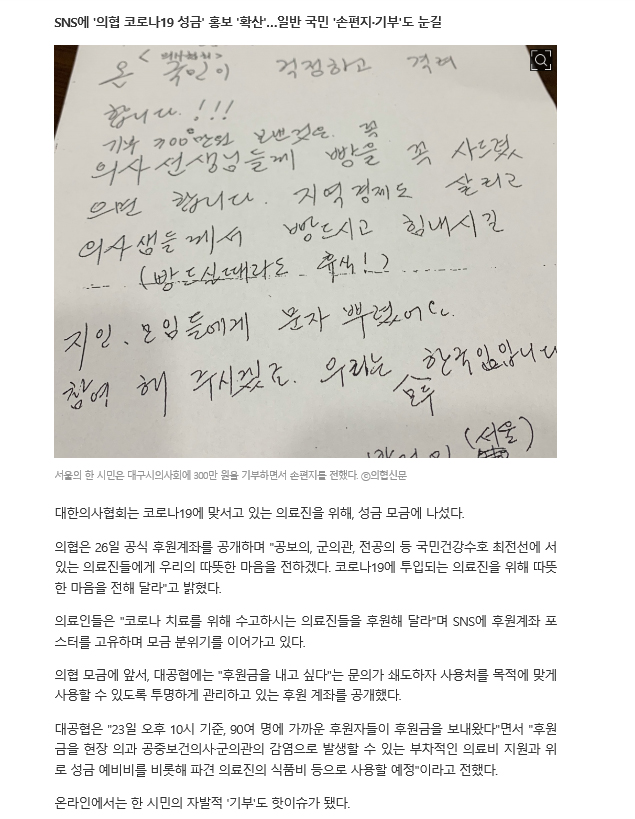 SNS에 '의협 코로나19 성금' 홍보 '확산'…일반 국민 '손편지·기부'도 눈길
온 국민이 걱정하고 격려
합니다.!!!
기부 300만원 보낸것은. 꼭
의사선생님들께 빵을 꼭 사드렸
으면 합니다. 지역경제도 살리고
의사샘들께서 빵드시고 힘내시길
(빵드실때라도 휴식!)
지인、모임들에게 문자 뿌렸어
참여 해 주시겠죠. 우리는 모두 한국임입니다
(서울)
서울의 한 시민은 대구시의사회에 300만 원을 기부하면서 손편지를 전했다. ⓒ의협신문
대한의사협회는 코로나19에 맞서고 있는 의료진을 위해, 성금 모금에 나섰다.
의협은 26일 공식 후원계좌를 공개하며 "공보의, 군의관, 전공의 등 국민건강수호 최전선에 서
있는 의료진들에게 우리의 따뜻한 마음을 전하겠다. 코로나19에 투입되는 의료진을 위해 따뜻
한 마음을 전해 달라"고 밝혔다.
의료인들은 "코로나 치료를 위해 수고하시는 의료진들을 후원해 달라"며 SNS에 후원계좌 포
스터를 고유하며 모금 분위기를 이어가고 있다.
의협 모금에 앞서, 대공협에는 "후원금을 내고 싶다"는 문의가 쇄도하자 사용처를 목적에 맞게
사용할 수 있도록 투명하게 관리하고 있는 후원 계좌를 공개했다.
대공협은 "23일 오후 10시 기준, 90여 명에 가까운 후원자들이 후원금을 보내왔다"면서 "후원
금을 현장 의과 공중보건의사·군의관의 감염으로 발생할 수 있는 부차적인 의료비 지원과 위
로 성금 예비비를 비롯해 파견 의료진의 식품비 등으로 사용할 예정"이라고 전했다.
온라인에서는 한 시민의 자발적 '기부'도 핫이슈가 됐다.